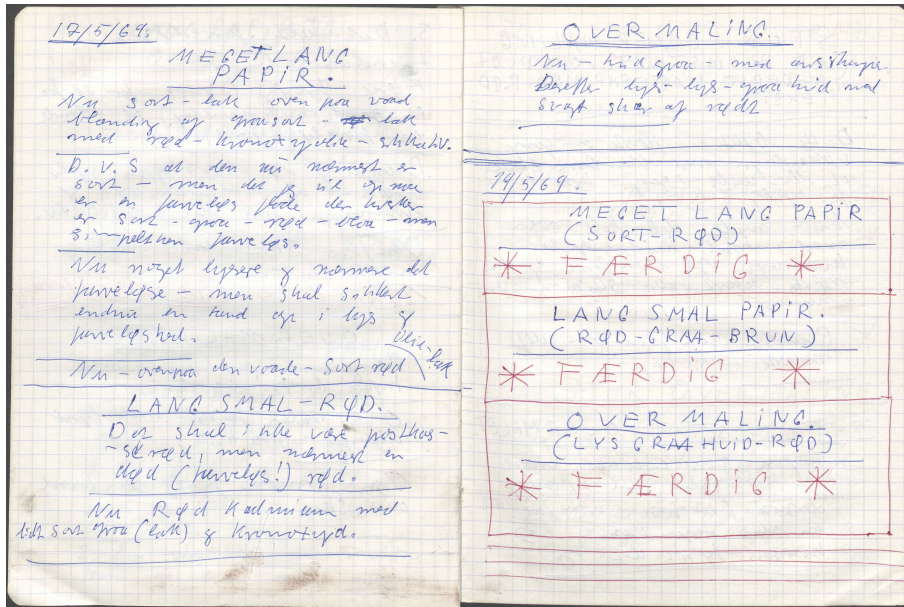 17/5/69.
MEGET LANG
PAPIR.
Nu sort - lak oven paa vaad
blanding af graasort - lak
med rød - Kronotex
D.V.S at den nu nærmest er
sort - men det jeg vil op mod
er en farveløs flade der hverken
er sort - graa - rød - blaa - men
simpelthen farveløs.
Nu noget lysere og nærmere det
farveløse - men skal sikkert
endnu en tand op i lys og
farveløshed.
Nu - ovenpaa den vaade - Sort rød
lak
LANG SMAL - RØD.
Det skal ikke være postkas-
-serød, men nærmest en
død (farveløs!) rød.
Nu Rød Kadmium med
lidt sort graa (lak) og
OVERMALING.
Nu - hvid graa - med
Derefter lys - lys - graa hvid med
svagt skær af rødt
19/5/69.
MEGET LANG PAPIR
(SORT-RØD)
* FÆRDIG *
LANG SMAL PAPIR.
(RØD-GRAA-BRUN)
* FÆRDIG *
OVERMALING.
(LYS GRAA HVID-RØD)
* FÆRDIG *